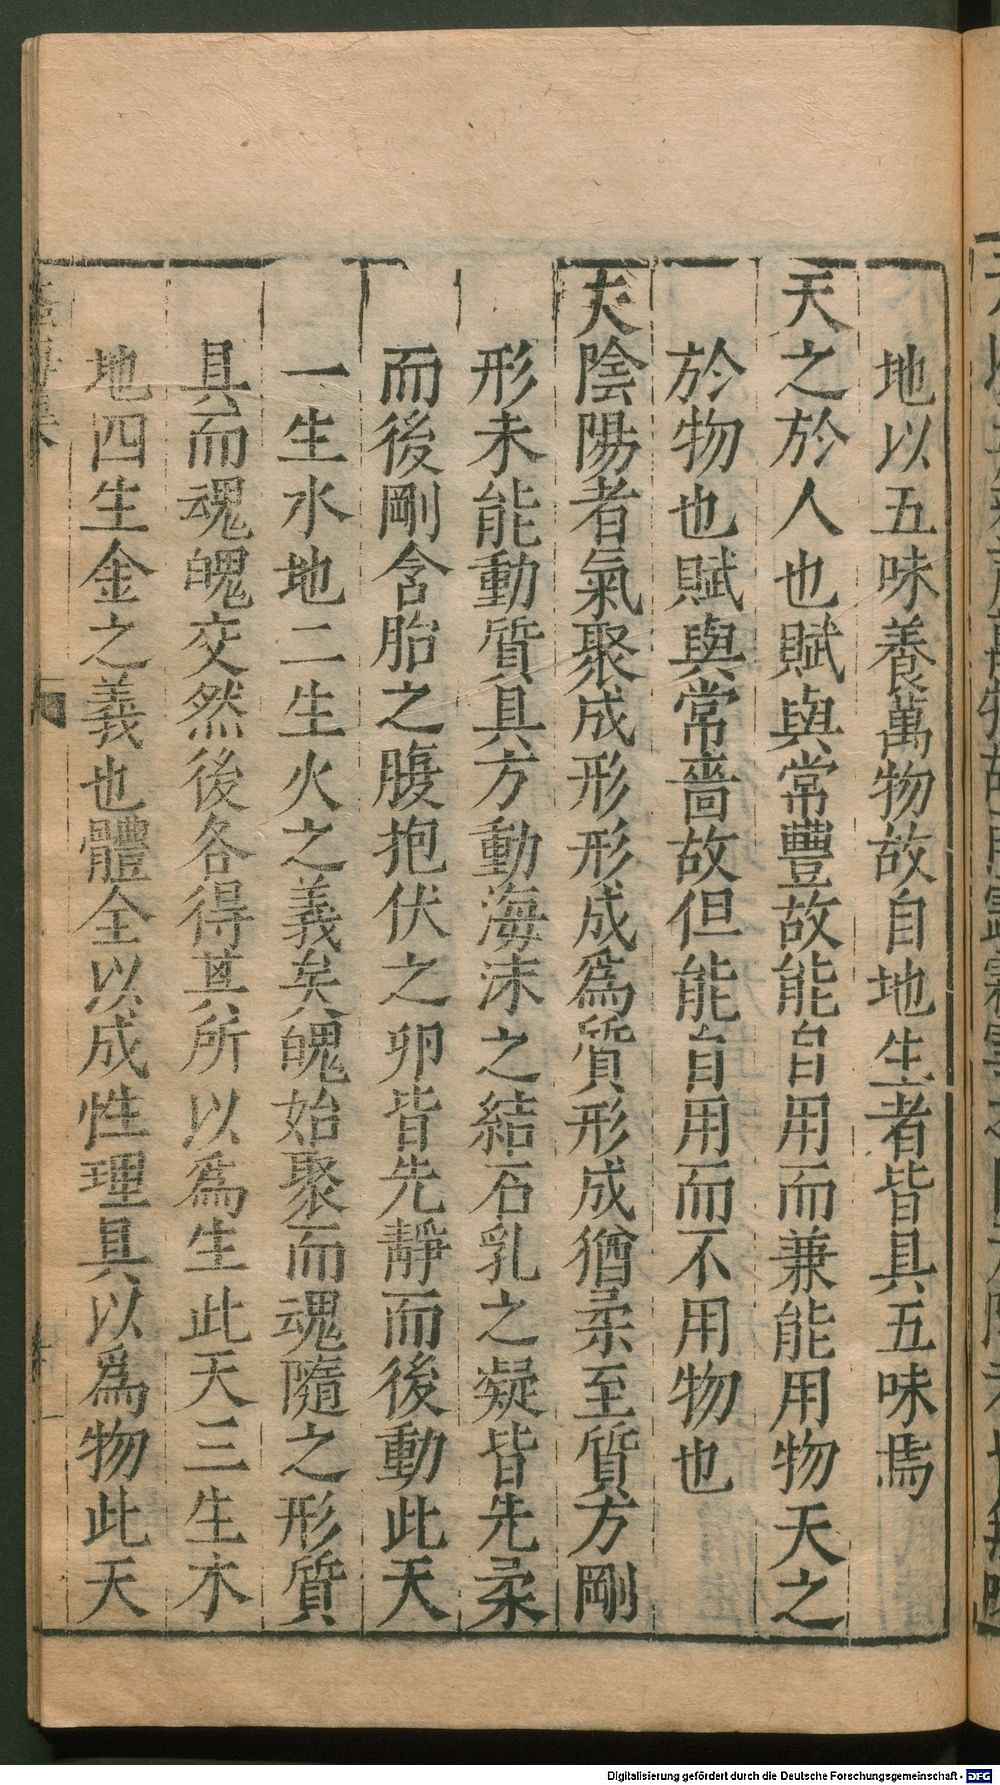 地以五味養萬物故自地生者皆具五味焉
天之於人也賦與常豐故能自用而兼能用物天之
於物也賦與常嗇故但能自用而不用物也
夫陰陽者氣聚成形形成爲質形成猶柔至質方剛
形未能動質具方動海沫之結石乳之凝皆先柔
而後剛含胎之腹抱伏之卵皆先靜而後動此天
一生水地二生火之義矣魄始聚而魂隨之形質
具而魂魄交然後各得其所以爲生此天三生木
地四生金之義也體全以成性理具以爲物此天
Digitalisierung gefördert durch die Deutsche Forschungsgemeinschaft - DFG